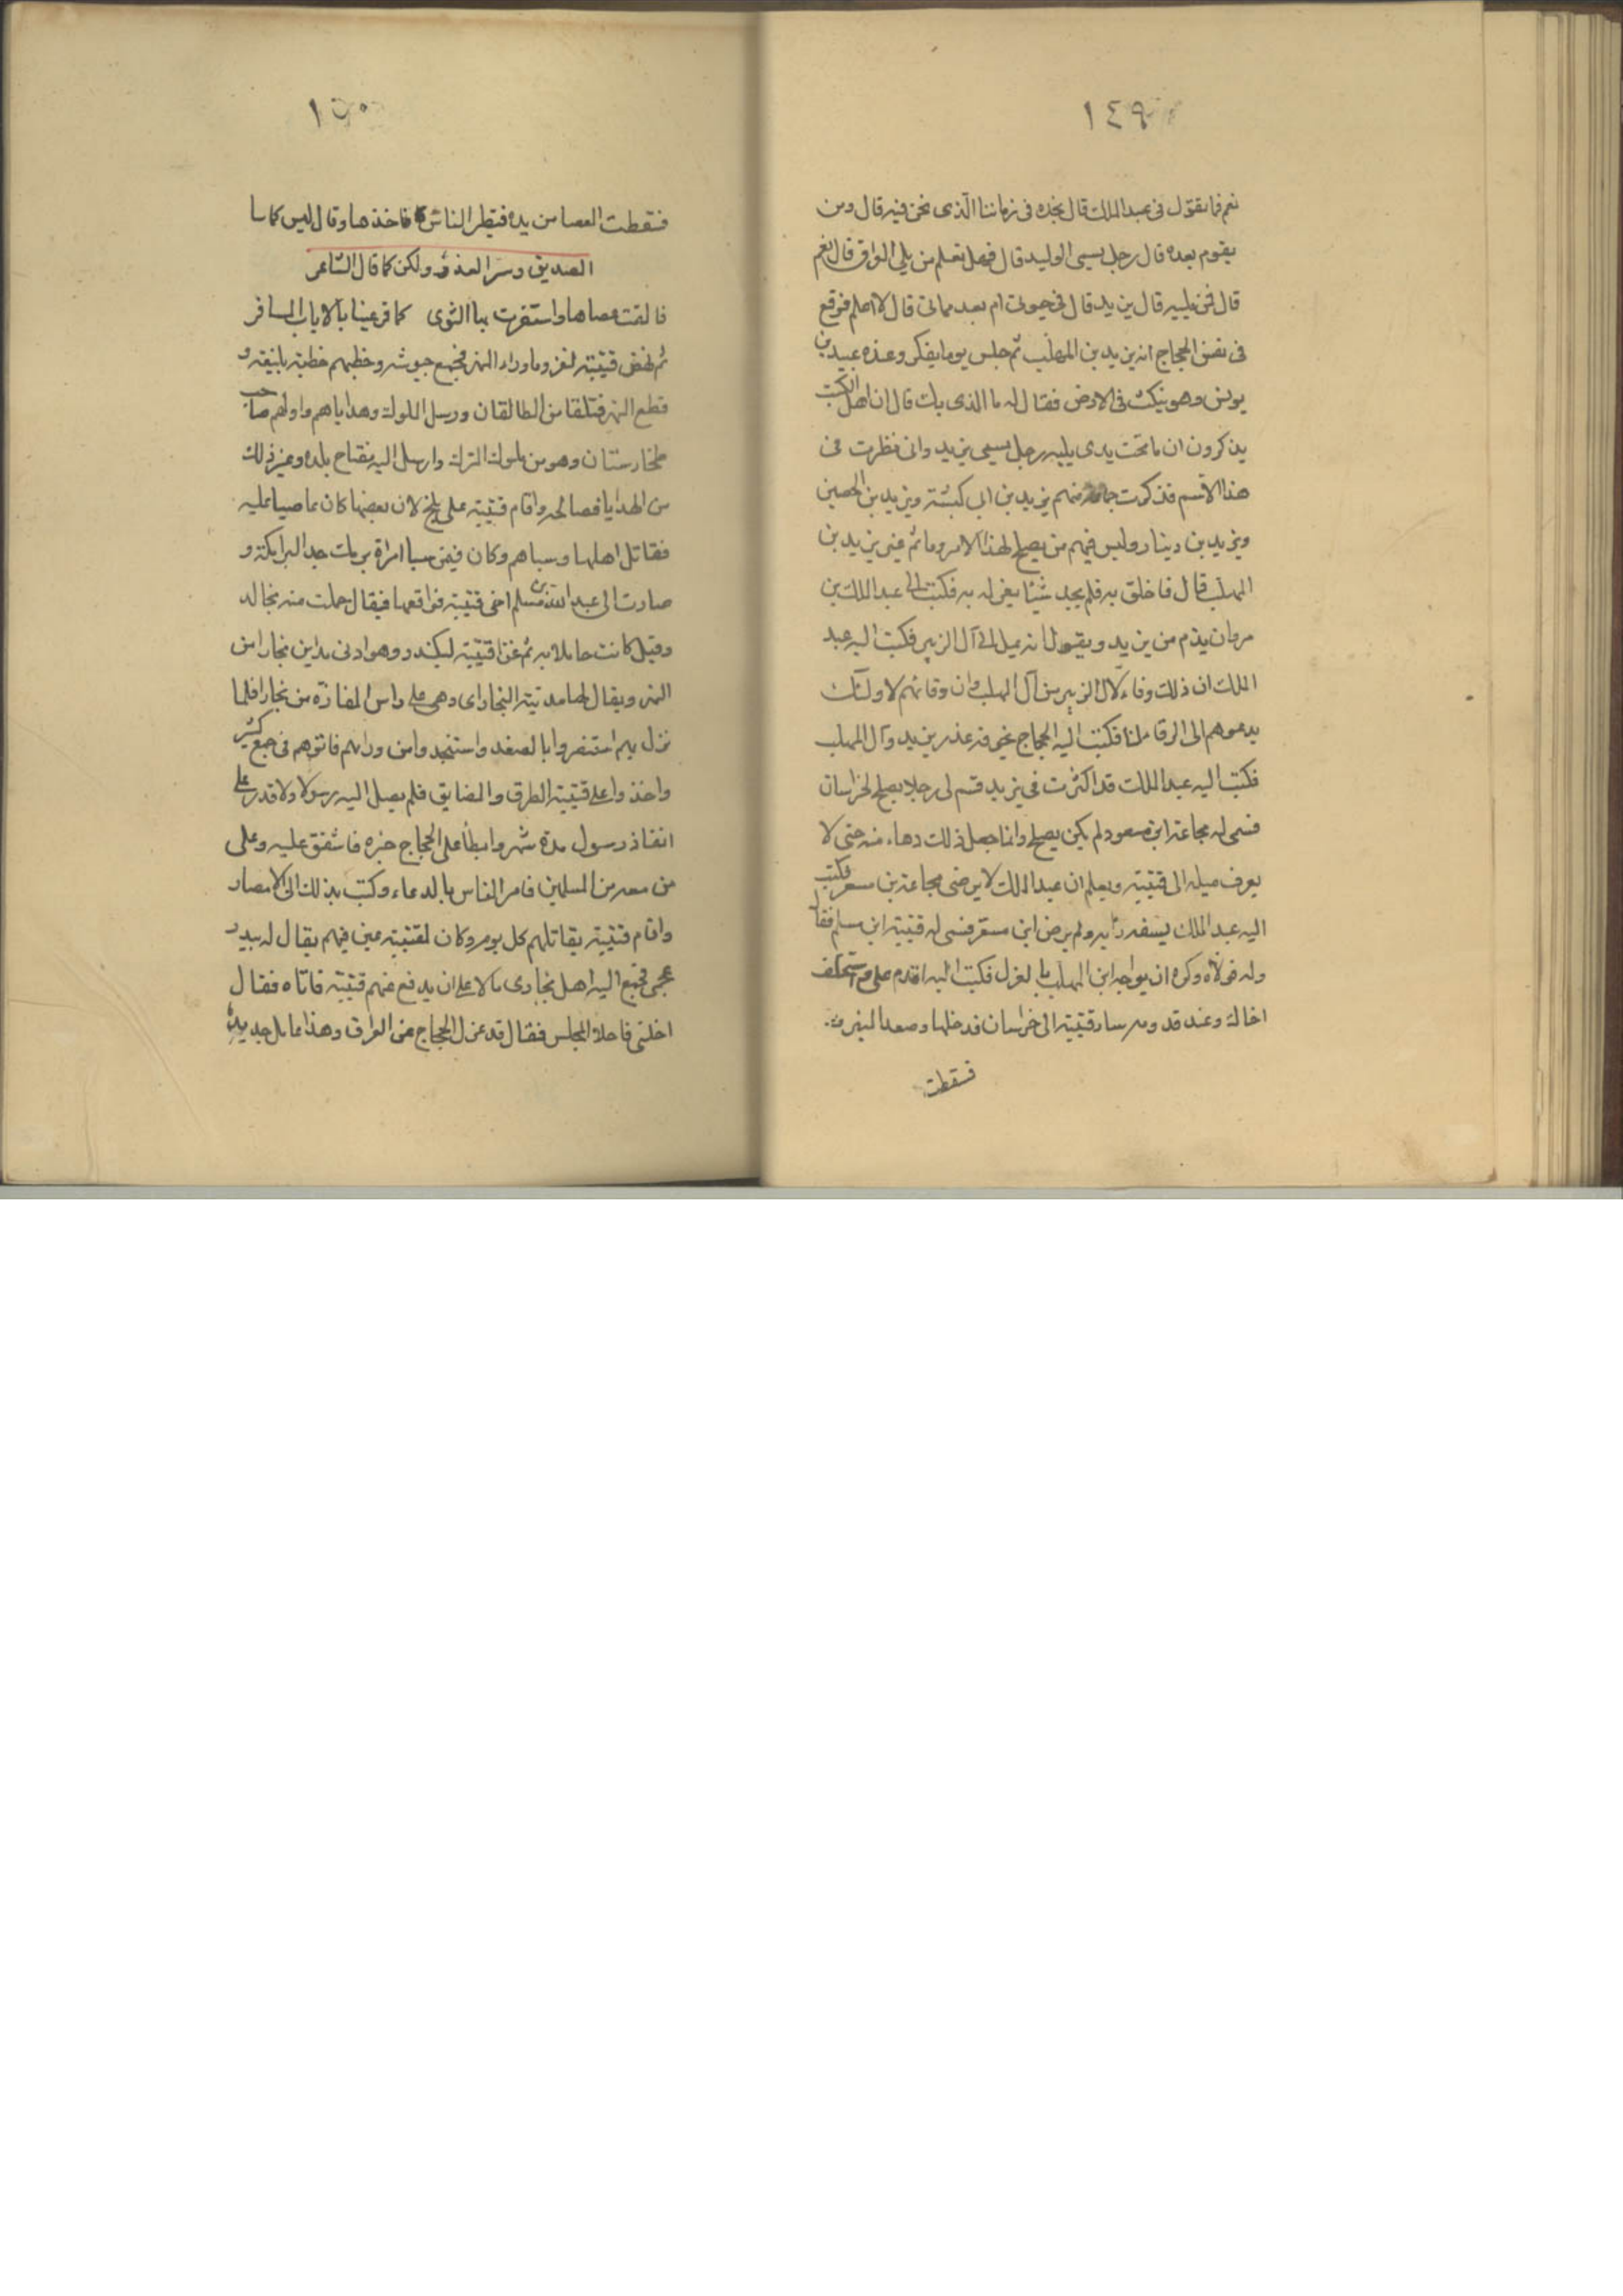 ١٤٩
نعم فما تقول فى عبد الملك قال نجده فى زماننا الذى نحن فيه قال ومن
يقوم بعده قال رجل يسمى الوليد قال فهل تعلم من يلى العراق قال نعم
قال فمن يليه قال يزيد قال فى حيوتى ام بعد مماتى قال لا اعلم فوقع
فى نفس الحجاج انه يزيد بن المهلب ثم جلس يوما يفكر وعنده عبيد بن
يونس وهو ينكث فى الارض فقال له ما الذى بك قال ان اهل الكتب
يذكرون ان ما تحت يدى يليه رجل يسمى يزيد وانى نظرت فى
هذا الاسم فذكرت جماعة منهم يزيد بن ابى كبشة ويزيد بن الحصين
ويزيد بن دينار وليس فيهم من يصلح لهذا الامر وما ثم غير يزيد بن
المهلب قال فاخلق به فلم يجد شيئا يعزله به فكتب الى عبد الملك بن
مروان يذم من يزيد ويقول انه يميل الى آل الزبير فكتب اليه عبد
الملك ان ذلك وفاء لآل الزبير من آل المهلب وان وفائهم لاولئك
يدعوهم الى الوفا لنا فكتب اليه الحجاج يخوفه غدر يزيد وآل المهلب
فكتب اليه عبد الملك قد اكثرت فى يزيد فسم لى رجلا يصلح لخراسان
فسمى له مجاعة ابن مسعود لم يكن يصلح وانما جعل ذلك دهاء منه حتى لا
يعرف ميله الى قتيبة ويعلم ان عبد الملك لا يرضى مجاعة بن مسعر فكتب
اليه عبد الملك يسفه رأيه ولم يرض ابن مسعر فسمى له قتيبة ابن مسلم فقال
وله فولاه وكره ان يواجه ابن المهلب بالعزل فكتب اليه اقدم على واستخلف
اخاك وعند قدومه سار قتيبة الى خراسان فدخلها وصعد المنبر
فسقطت
١٥٠
فسقطت العصا من يده فتطير الناس فاخذها وقال ليس كما سا
الصديق وسر العدو ولكن كما قال الشاعر
فالقت عصاها واستقرت بها النوى كما قر عينا بالاياب المسافر
ثم نهض قتيبة لغزو ما وراء النهر فجمع جيوشه وخطبهم خطبة بليغة و
قطع النهر فتلقا من الطالقان ورسل الملوك وهداياهم واولهم صاحب
طخارستان وهو من ملوك الترك وارسل اليه مفتاح بلده وغير ذلك
من الهدايا فصالحه واقام قتيبة على بلخ لان بعضها كان عاصيا عليه
فقاتل اهلها وسباهم وكان فيمن سبا امراة برمك جد البرامكة و
صارت الى عبد الله بن مسلم اخى قتيبة فواقعها فيقال حملت منه بخالد
وقيل كانت حاملا به ثم غزا قتيبة ليكند وهو ادنى مداين بخارا من
النهر ويقال لها مدينة التجار اى وهى على راس المفازه من بخارا فلما
نزل بهم استنفروا بالصغد واستنجدوا من ورائهم فاتوهم فى جمع كثير
واخذوا على قتيبة الطرق والمضايق فلم يصل اليه رسولا ولا قدر على
انفاذ رسول مدة شهر وابطأ على الحجاج خبره فاشفق عليه وعلى
من معه من المسلمين فامر الناس بالدعاء وكتب بذلك الى الامصار
واقام قتيبة يقاتلهم كل يوم وكان لقتيبة عين فيهم يقال له بيدر
عجمى فجمع اليه اهل بخارى مالا على ان يدفع عنهم قتيبة فاتاه فقال
اخلنى فاخلا المجلس فقال قد عزل الحجاج عن العراق وهذا عامل جديد